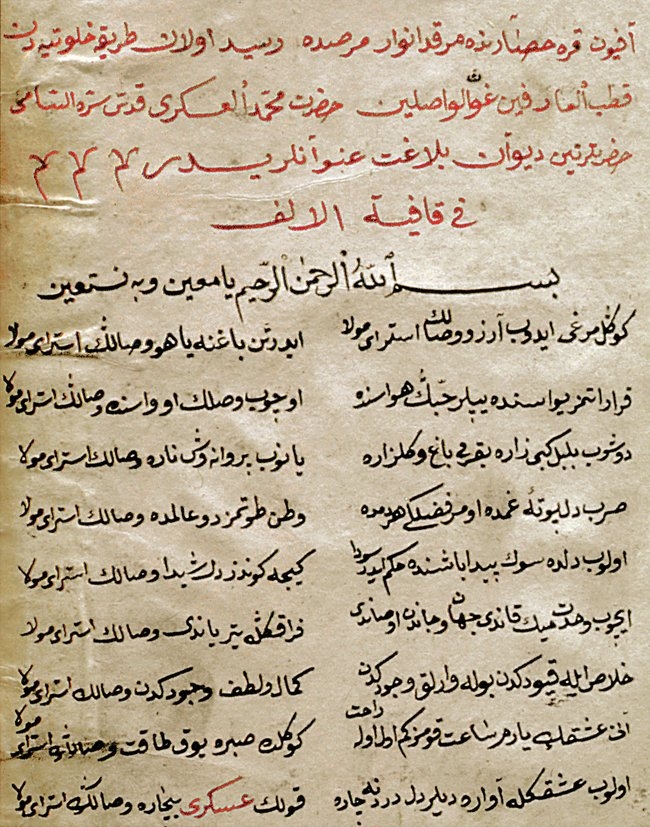 آفیون قره حصارنده مرقد انوار مرصده رسید اولان طریق خلوتیه دن
قطب العارفین غوث الواصلین حضرت محمد العسکری قدس سره السامی
حضرتلرینین دیوان بلاغت عنوانلریدر م م م
فی قافیة الالف
بسم الله الرحمن الرحیم یا معین وبه نستعین
کوکل مرغی ایدوب آرزو وصالك استر ای مولا ایدر باغنه یاهو وصالك استر ای مولا
قرار ایتمز یواسنده ییلر حبك هواسنده اوچوب وصلك اوواسنه وصالك استر ای مولا
دوشوب بلبل کبی زاره باغ و کلزاره یانوب پروانه وش ناره وصالك استر ای مولا
غمده اومر فضلکی هر دمده وطن طوتمز دو عالمده وصالك استر ای مولا
اولوب دلده پیدا باشنده کیجه کوندز دل شیدا وصالك استر ای مولا
ایچوب وحدت میك قاندی جهان و جاندن اوصاندی فراقکله یتر یاندی وصالك استر ای مولا
خلاص ایله قیود کدن بو له وارلق وجود کدن کمال و لطف وجودکدن وصالك استر ای مولا
آنی عشقك یاره ر ساعت قومز کم اوله راحت کوکلده صبره یوق طاقت وصالك استر ای مولا
اولوب عشقکله آواره دیلر دل دردنه چاره قولك عسکری بیچاره وصالك استر ای مولا